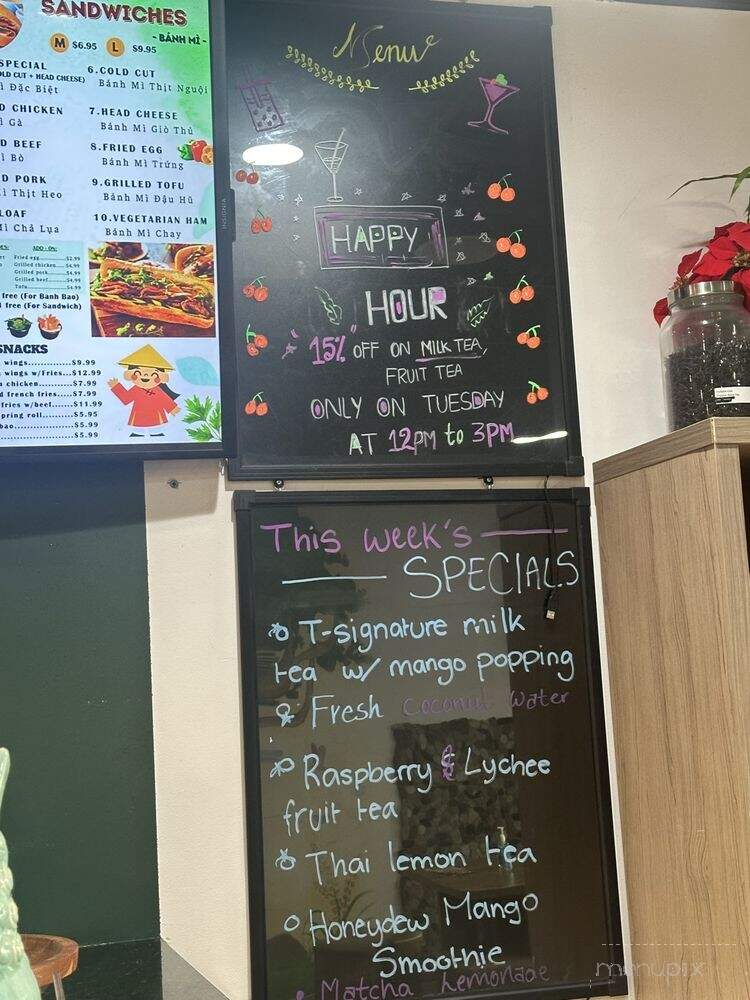 SANDWICHES
- BÁNH MÌ -
M $6.95 L $9.95
SPECIAL
COLD CUT + HEAD CHEESE)
Đặc Biệt
CHICKEN
Gà
BEEF
Bò
PORK
Thịt Heo
LOAF
Chả Lụa
6.COLD CUT
Bánh Mì Thịt Nguội
7.HEAD CHEESE
Bánh Mì Giò Thủ
8.FRIED EGG
Bánh Mì Trứng
9.GRILLED TOFU
Bánh Mì Đậu Hũ
10.VEGETARIAN HAM
Bánh Mì Chay
ADD - ON:
Fried egg $2.99
Grilled chicken $4.99
Grilled pork $4.99
Grilled beef $4.99
Tofu $4.99
free (For Banh Bao)
free (For Sandwich)
SNACKS
wings $9.99
wings w/Fries $12.99
chicken $7.99
french fries $7.99
fries w/beef $11.99
spring roll $5.95
bao $5.99
$5.99
INSIGNIA
Menu
HAPPY
HOUR
"15%" OFF ON MILK TEA,
FRUIT TEA
ONLY ON TUESDAY
AT 12PM to 3PM
This week's
SPECIALS
T-signature milk
tea w/ mango popping
Fresh Coconut Water
Raspberry & Lychee
fruit tea
Thai lemon tea
Honeydew Mango
Smoothie
Matcha Lemonade
menupix